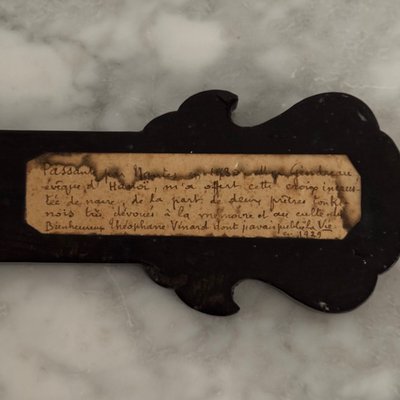 Passant par Nantes en 1930 Mgr Gendreau
évêque d'Hanoï, m'a offert cette croix incrus
tée de nacre, de la part de deux prêtres tonki
nois très dévoués à la mémoire et au culte du
Bienheureux Théophane Vénard dont j'avais publié la Vie
en 1929